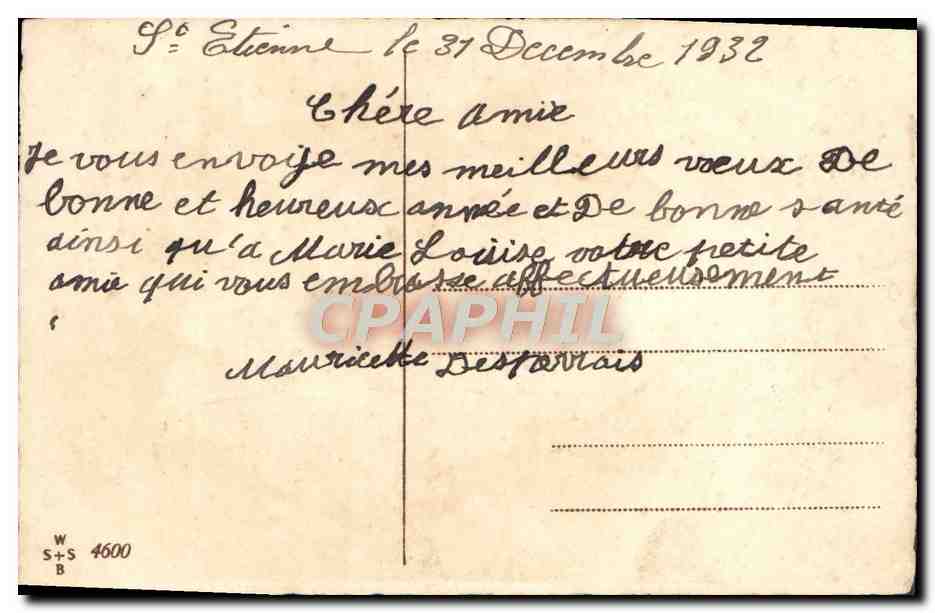 St Etienne le 31 Decembre 1932
Chére amie
Je vous envoije mes meilleurs vœux De
bonne et heureux année et De bonne santé
ainsi qu'a Marie Louise votre petite
amie qui vous embrasse affectueusement
CPAPHIL
Mauricette
W
S+S 4600
B